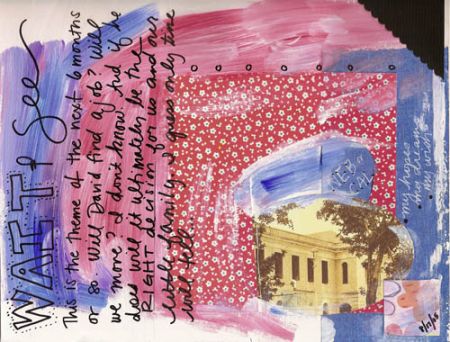 WAIT & See
This is the theme of the next 6 months
or so. Will David find a job? Will
we move? I don't know. And if he
does will it ultimately be the
RIGHT decision for us and our
little family. I guess only time
will tell...
my hopes
my dreams
my wishes